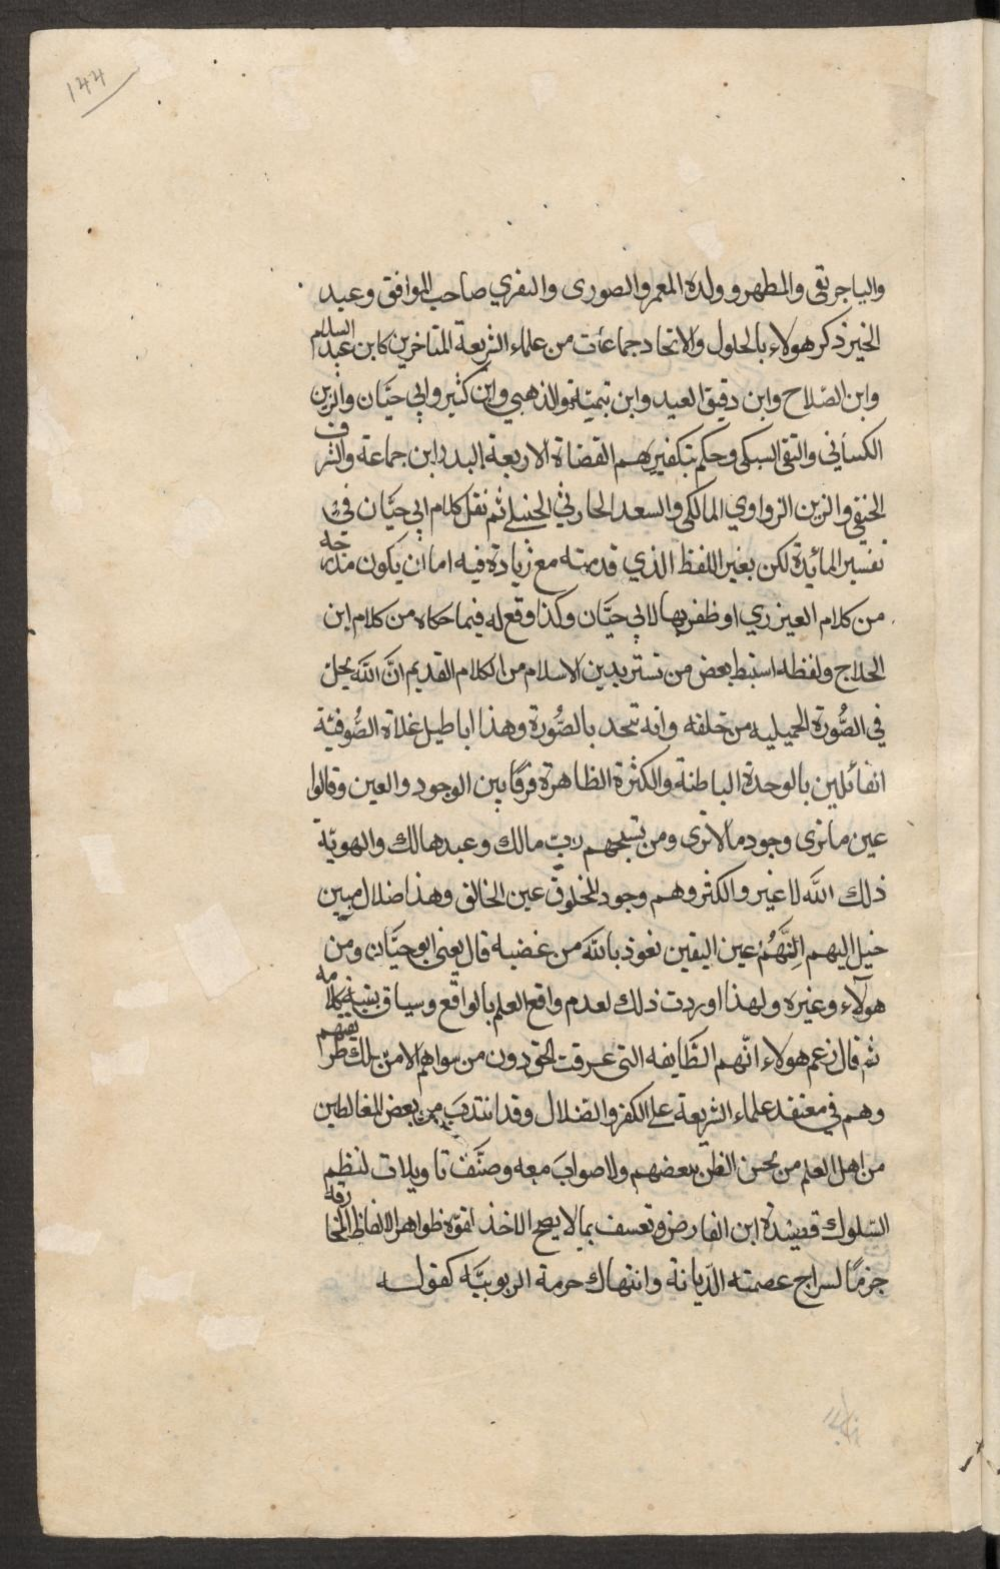 ١٤٤
والباجربقى والمطهر وولده المعمر والصورى والنفري صاحب المواقف وعبد
الخير ذكر هولاء بالحلول والاتحاد جماعات من علماء الشريعة المتاخرين كابن عبد السلام
وابن الصّلاح وابن دقيق العيد وابن تيمية والذهبي وابن كثير وابي حيّان والزين
الكسائني والتقى السبكي وحكم بتكفيرهم القضاة الاربعة البدر ابن جماعة والشرف
الحنفي والزين الزواوي المالكي والسعد الحارثي الحنبلي ثم نقل كلام ابي حيّان في
تفسير المائدة لكن بغير اللفظ الذي قدمته مع زيادة فيه اما ان يكون مندرجه
من كلام العيزري او ظفر بها لابي حيّان وكذا وقع له فيما حكاه من كلام ابن
الحلاج ولفظه استنبط بعض من تستر بدين الاسلام من الكلام القديم انّ الله يحل
في الصُّورة الجميليه من خلفه وانه تتحد بالصُّورة وهذا اباطيل غلاة الصُّوفيّة
القائلين بالوحدة الباطنة والكثرة الظاهرة فرقًا بين الوجود والعين وقالوا
عين ما ترى وجود ما لا ترى ومن تسبيحهم ربّ مالك وعبد هالك والهويّة
ذلك الله لا غير والكثر وهم وجود المخلوق عين الخالق وهذا ضلال مبين
خيل اليهم انّهُم عين اليقين نعوذ بالله من غضبه قال يعنى ابو حيّان ومن
هولآء وغيره ولهذا اوردت ذلك لعدم واقع العلم بالواقع وسياق بقية كلامه
ثم قال زعم هولاء انّهم الطّايفه التى عرفت الحق دون من سواهم الا من سلك طريقتهم
وهم في معتقد علماء الشريعة على الكفر والضلال وقد انتدبَ من بعض المغالطين
من اهل العلم من يحسن الظن ببعضهم ولا صوابَ معه وصنّف تاويلات لنظم
السّلوك قصيدة ابن الفارض وتعسف بما لا يصح الاخذ لقوّة ظواهر الالفاظ الخارقه
جزمًا لسراج عصمته الدّيانة وانتهاك حرمة الربوبيّه كقوله